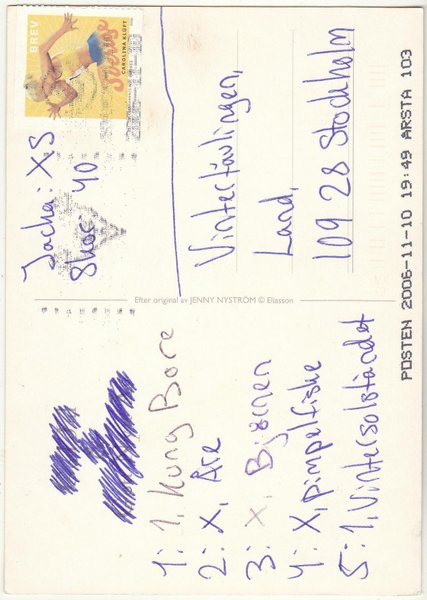 1: 1, Kung Bore
2: X, Åre
3: X, Björnen
4: X, pimpelfiske
5: 1, Vintersolståndet
Efter original av JENNY NYSTRÖM © Eliasson
Jacka: XS
Skor: 40
BREV
Sverige
CAROLINA KLÜFT
Vintertävlingen,
Land,
109 28 Stockholm
POSTEN 2006-11-10 19:49 ARSTA 103